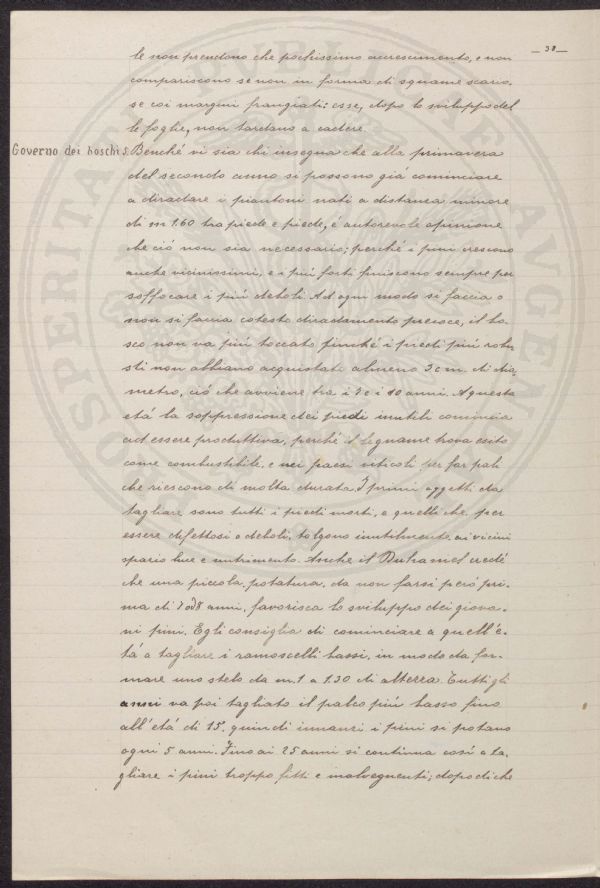 — 38 —
le non prendono che pochissimo accrescimento, e non
compariscono se non in forma di squame scario-
se coi margini frangiati: esse, dopo lo sviluppo del
le foglie, non tardano a cadere.
Governo dei boschi. Benché vi sia chi insegna che alla primavera
del secondo anno si possono giá cominciare
a diradare i piantoni nati a distanza minore
di m 1.60 tra piede e piede, é autorevole opinione
che ció non sia necessario; perché i pini crescono
anche vicinissimi, e i piú forti finiscono sempre per
soffocare i piú deboli. Ad ogni modo si faccia o
non si faccia cotesto diradamento precoce, il bo-
sco non va piú toccato finché i piedi piú robu-
sti non abbiano acquistato almeno 3 cm. di dia-
metro, ció che avviene tra i 7 e i 10 anni. A questa
etá la soppressione dei piedi inutili comincia
ad essere produttiva, perché il legname trova esito
come combustibile, e nei paesi viticoli per far pali
che riescono di molta durata. I primi oggetti da
tagliare sono tutti i piedi morti, e quelli che per
essere difettosi o deboli, tolgono inutilmente ai vicini
spazio luce e nutrimento. Anche il Duhamel crede
che una piccola potatura, da non farsi peró pri-
ma di 7 od 8 anni, favorisca lo sviluppo dei giova-
ni pini. Egli consiglia di cominciare a quell'e-
tá a tagliare i ramoscelli bassi, in modo da for-
mare uno stelo da m. 1 a 1.30 di altezza. Tutti gli
anni va poi tagliato il palco piú basso fino
all'etá di 15. quindi innanzi i pini si potano
ogni 5 anni. Fino ai 25 anni si continua cosí a ta-
gliare i pini troppo fitti e malvegnenti; dopodiche
PROSPERITATI AVGENDAE